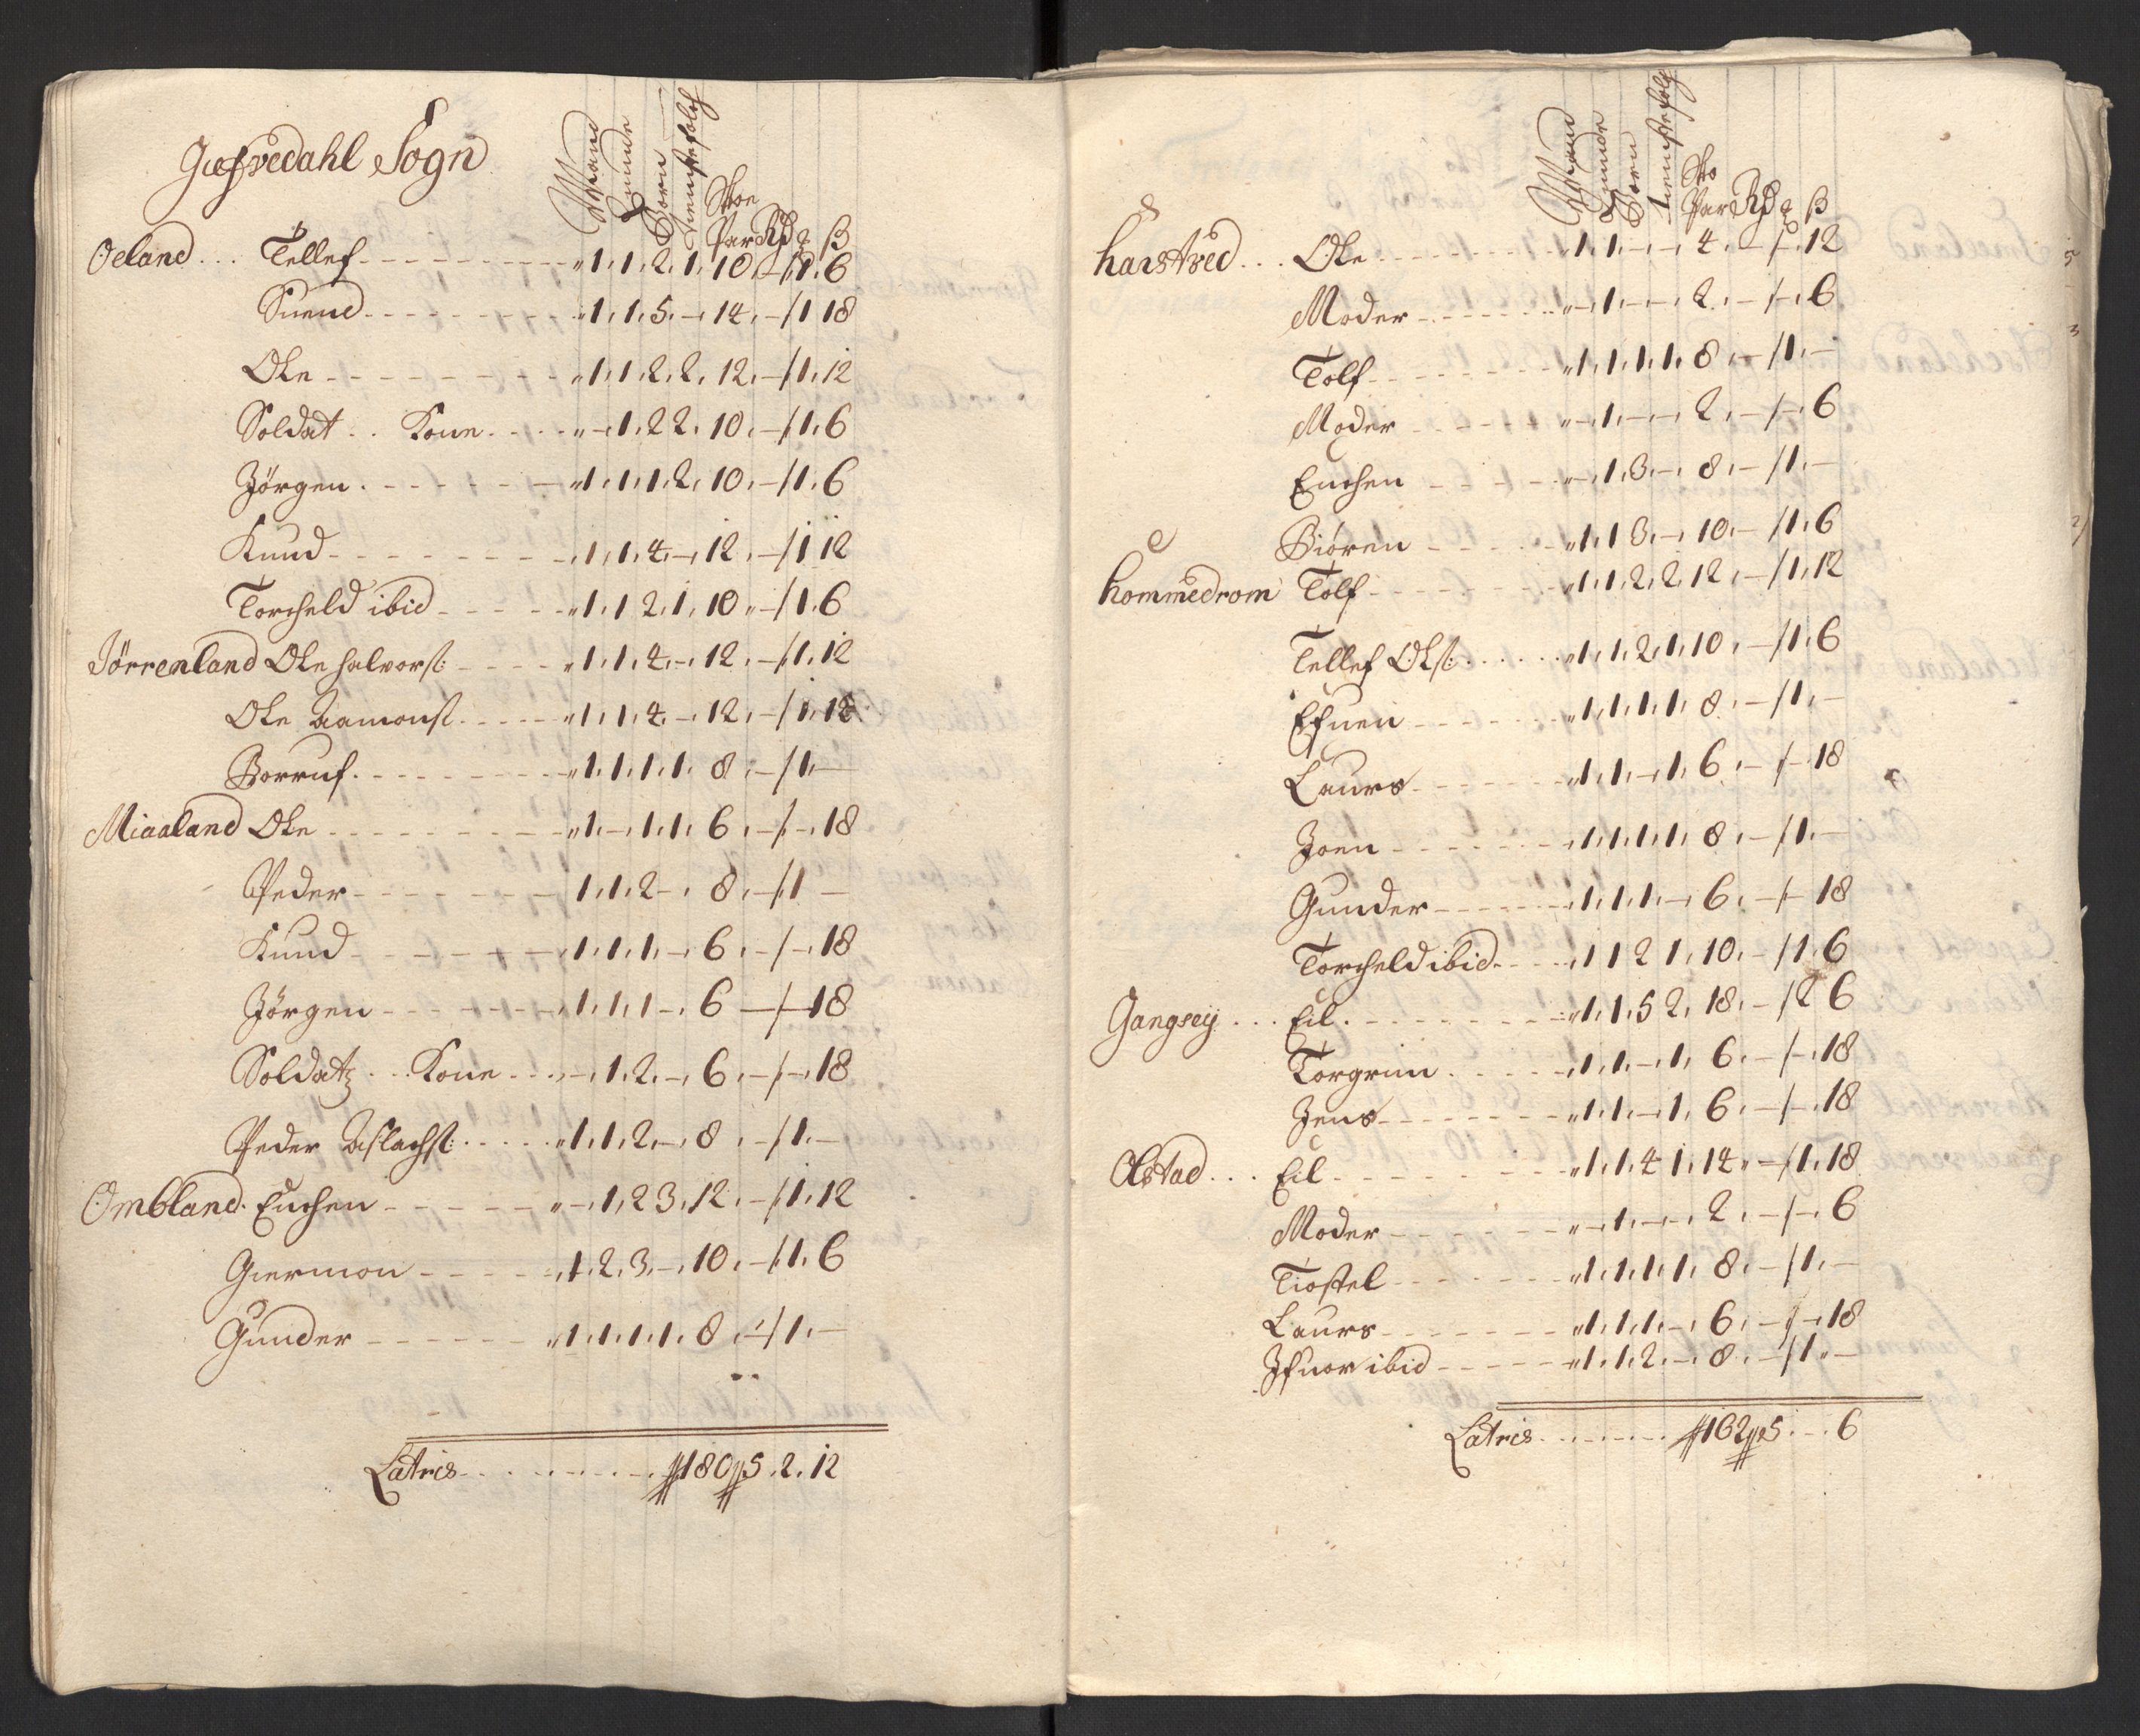 Giefvedahl Sogn
Mand Quinde Børn Tienistefolch Skoe Par Rd ß
Oeland... Tellef - - - 1. 1. 2. 1. 10. - / 1. 6
Suend - - - 1. 1. 5. - 14. - / 1 18
Ole - - - 1. 1. 2. 2. 12. - / 1. 12
Soldat .. Kone - - - - 1. 2 2. 10. - / 1. 6
Jørgen - - - 1. 1. 1. 2. 10. - / 1. 6
Knud - - - 1. 1. 4. - 12. - / 1 12
Torcheld ibid - - - 1. 1 2. 1. 10. - / 1. 6
Jörrenland Ole Halvors: - - - 1. 1. 4. - 12. - / 1. 12
Ole Aamons: - - - 1. 1. 4. - 12. - / 1. 12
Borruf - - - 1. 1. 1. 1. 8. - / 1. -
Miaaland Ole - - - 1. - 1. 1. 6. - / - 18
Peder - - - 1. 1. 2 - . 8. - / 1 -
Knud - - - 1. 1. 1. - 6. - / - 18
Jørgen - - - 1. 1. 1 - . 6 - / - 18
Soldatz .. Kone - - - - 1. 2. - 6. - / - 18
Peder Aslachs: - - - 1. 1. 2. - 8. - / 1. -
Ombland. Enchen - - - - 1. 2 3. 12. - / 1. 12
Giermon - - - 1. 2. 3. - 10. - / 1. 6
Gunder - - - 1. 1. 1. 1. 8. - / 1. -
Latris - - - 180 5. 2. 12
Mand Quinde Børn Tienistefolch Sko Par Rd ß
Harstved... Ole - - - 1. 1. - - 4. - / - 12
Moder - - - - 1. - - 2. - / - 6
Tolf - - - 1. 1. 1. 1. 8. - / 1. -
Moder - - - - 1. - - 2. - / - 6
Enchen - - - - 1. 3. - 8. - / 1. -
Biøren - - - 1. 1 3. - 10. - / 1. 6
Hommedrom Tolf - - - 1. 1. 2. 2. 12. - / 1. 12
Tellef Ols: - - - 1. 1. 2. 1. 10. - / 1. 6
Efuen - - - 1. 1. 1. 1. 8. - / 1. -
Laurs - - - 1. 1. - 1. 6. - / - 18
Joen - - - 1. 1. 1. 1. 8. - / 1. -
Gunder - - - 1. 1. 1. - 6. - / - 18
Torcheld ibid - - - 1 1 2 1. 10. - / 1. 6
Gangsey... Eil - - - 1. 1. 5 2. 18. - / 2 6
Torgrim - - - 1. 1. - 1. 6. - / - 18
Jens - - - 1. 1. - 1. 6. - / - 18
Olstad... Eil - - - 1. 1. 4 1. 14. - / 1. 18
Moder - - - - 1. - - 2. - / - 6
Tiostel - - - 1. 1. 1. 1. 8. - / 1. -
Laurs - - - 1. 1. 1. - 6. - / - 18
Jfuor ibid - - - 1. 1. 2. - 8. - / 1. -
Latris - - - 162 5. - 6